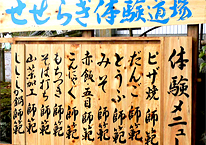 せせらぎ体験道場
体験メニュー
ピザ焼 師範
だんご 師範
とうふ 師範
みそ 師範
赤飯五目 師範
こんにゃく 師範
もちつき 師範
そば打ち 師範
山菜加工 師範
師範